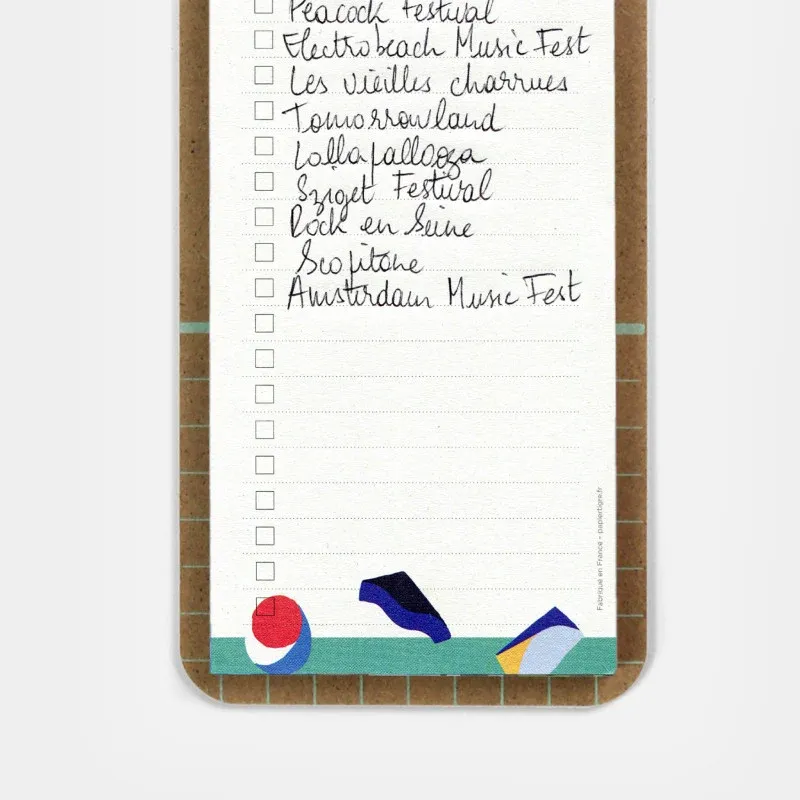 Peacock Festival
Electrobeach Music Fest
Les vieilles charrues
Tomorrowland
Lollapallooza
Sziget Festival
Rock en Seine
Scopitone
Amsterdam Music Fest
Fabriqué en France - papiertigre.fr